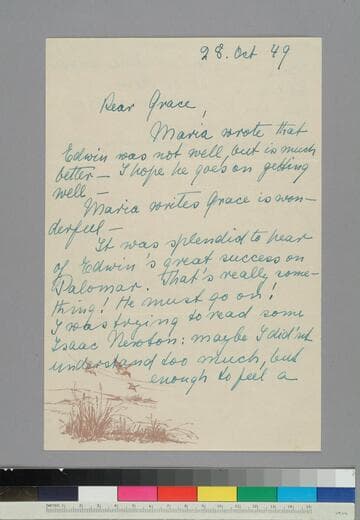 28. Oct 49
Dear Grace,
Maria wrote that
Edwin was not well, but is much
better — I hope he goes on getting
well —
Maria writes Grace is won-
derful —
It was splendid to hear
of Edwin's great success on
Palomar. That's really some-
thing! He must go on!
I was trying to read some
Isaac Newton: maybe I did'nt
understand too much, but
enough to feel a